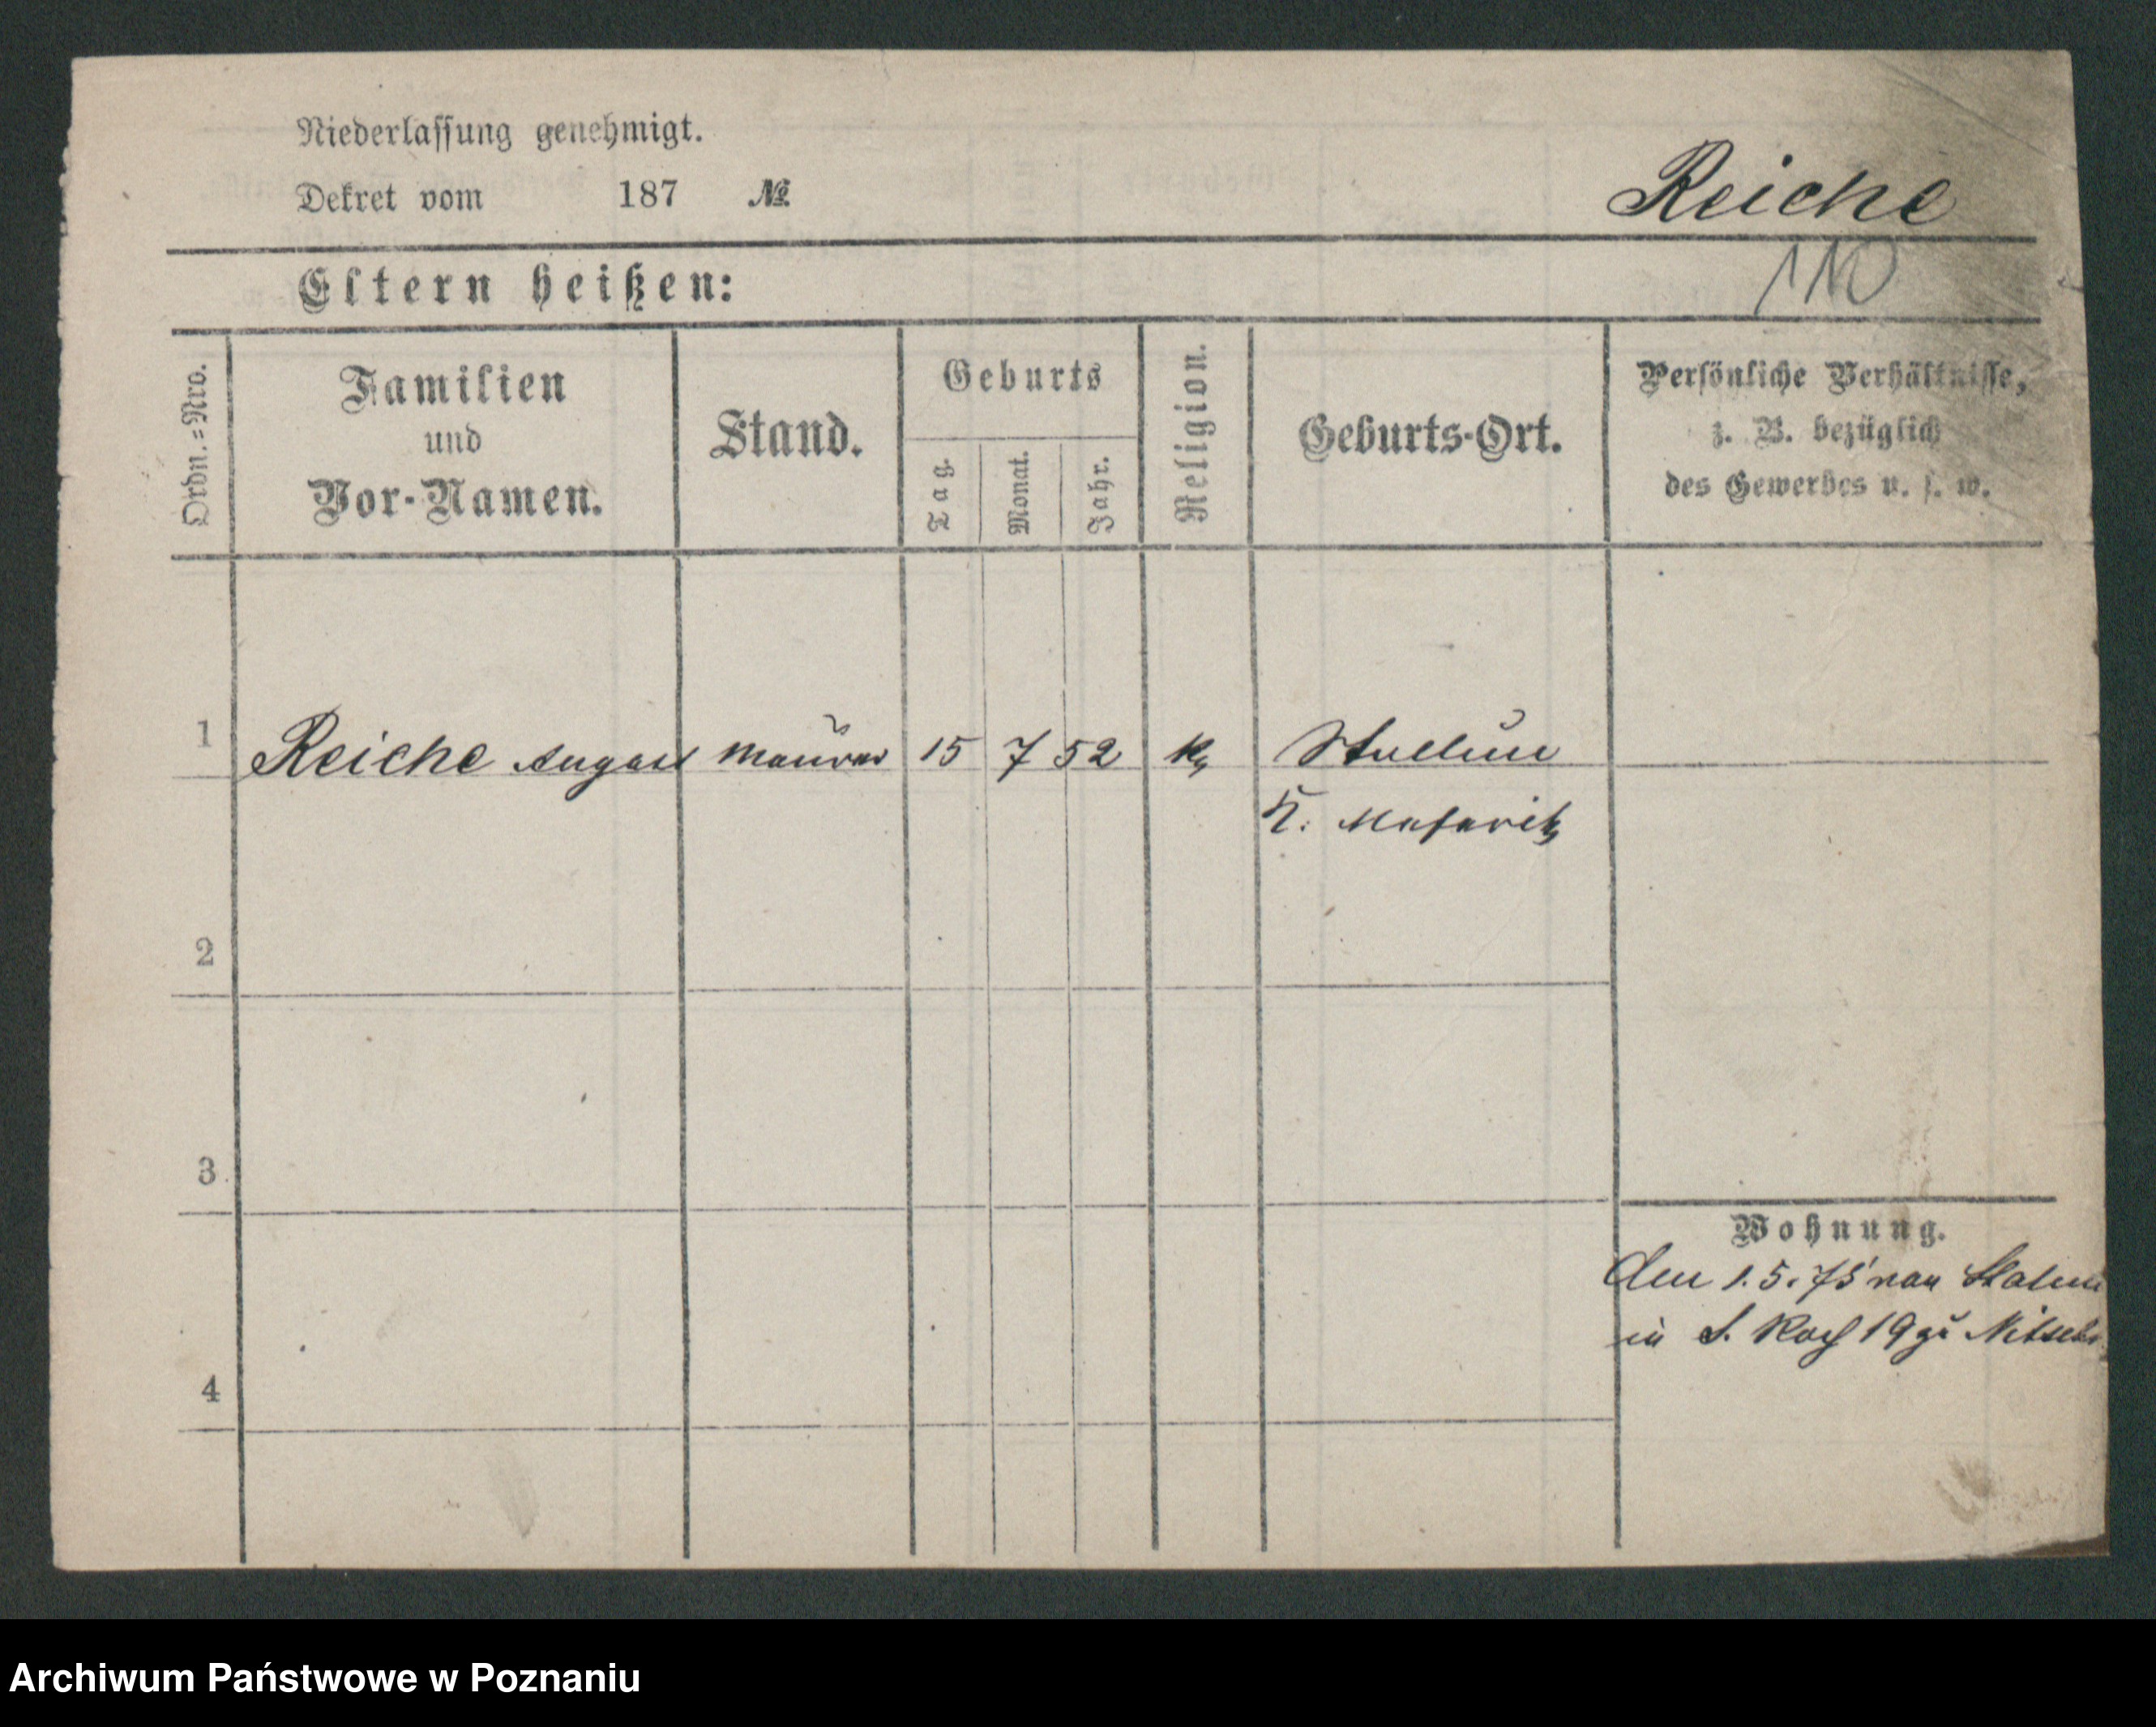 Niederlassung genehmigt.
Dekret vom 187 №
Reiche
110
Eltern heißen:
Ordn.=Nro.
Familien
und
Vor-Namen.
Stand.
Geburts
Tag.
Monat.
Jahr.
Religion.
Geburts-Ort.
Persönliche Verhältnisse,
z. B. bezüglich
des Gewerbes u. s. w.
1 Reiche August Maurer 15 7 52 k
K. Meseritz
2
3
4
Wohnung.
den 1.5.75 von
in S. Roch 19 zu
Archiwum Państwowe w Poznaniu